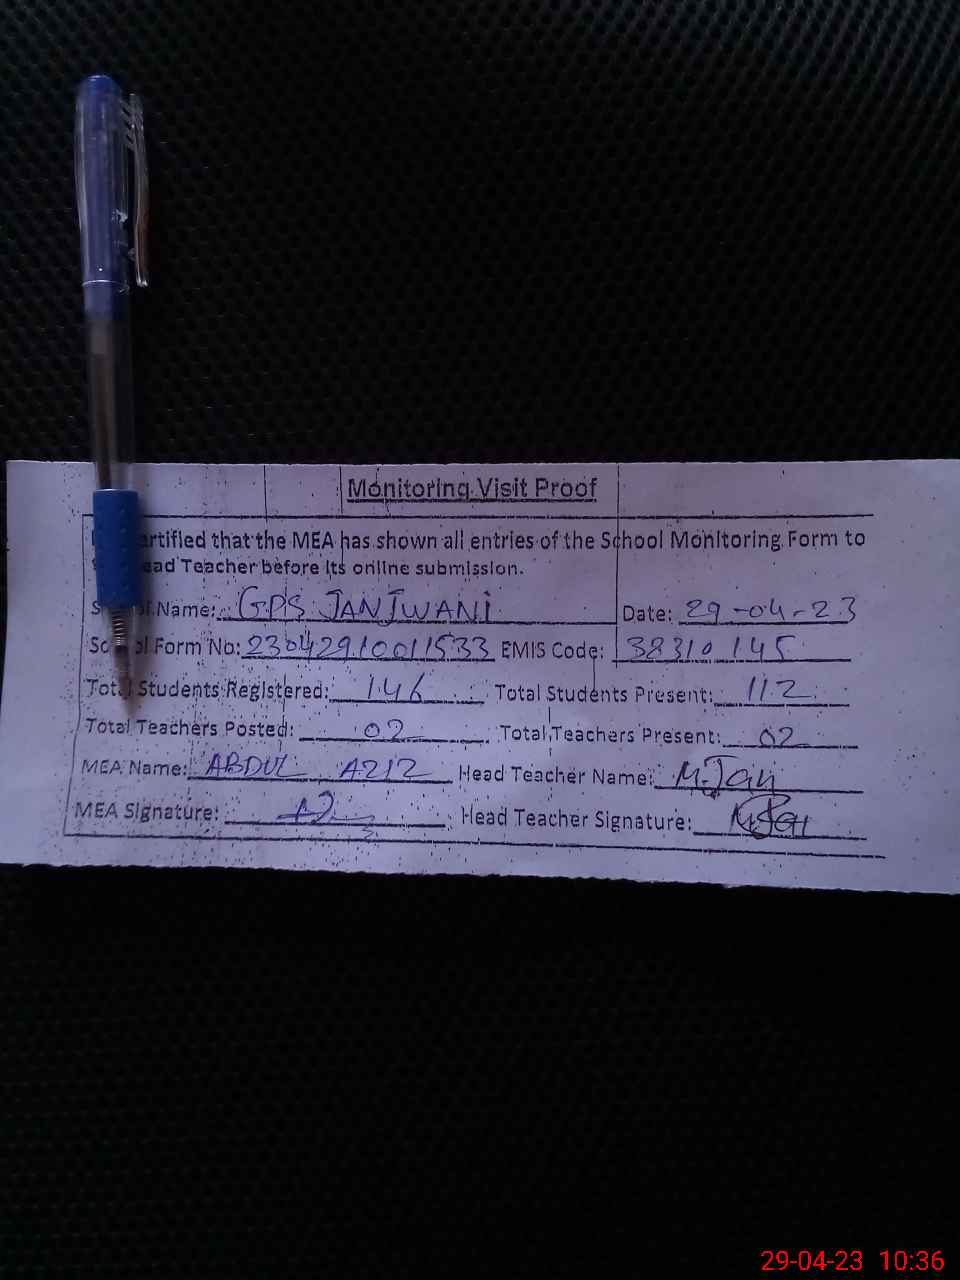 Monitoring Visit Proof
ertified that the MEA has shown all entries of the School Monitoring Form to
ead Teacher before its online submission.
School Name: GPS JANJWANI Date: 29-04-23
School Form No: 23042910011533 EMIS Code: 38310145
Total Students Registered: 146 Total Students Present: 112
Total Teachers Posted: 02 Total Teachers Present: 02
MEA Name: ABDUL AZIZ Head Teacher Name: M.Jan
MEA Signature: Head Teacher Signature:
29-04-23 10:36